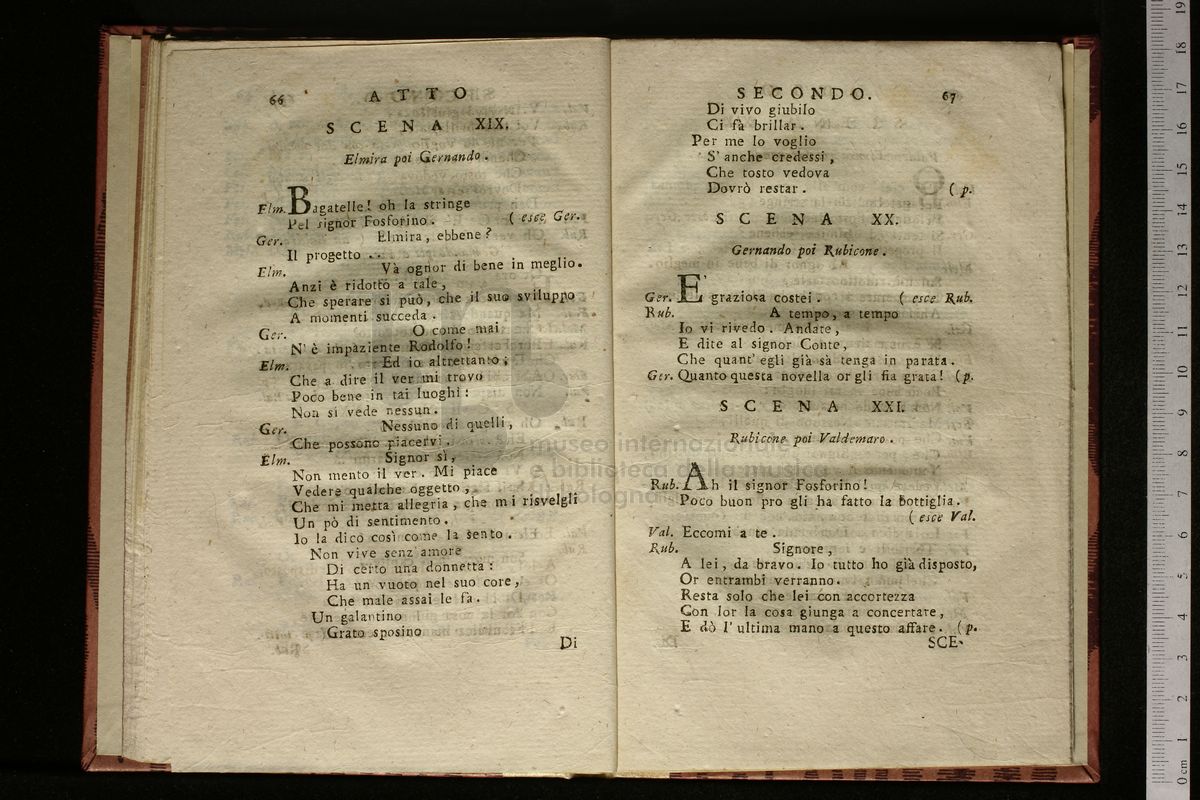 66 ATTO
SCENA XIX.
Elmira poi Gernando.
Elm. Bagatelle! oh la stringe
Pel signor Fosforino. ( esce Ger.
Ger. Elmira, ebbene?
Il progetto ..
Elm. Và ognor di bene in meglio.
Anzi è ridotto a tale,
Che sperare si può, che il suo sviluppo
A momenti succeda.
Ger. O come mai
N'è impaziente Rodolfo!
Elm. Ed io altrettanto;
Che a dire il ver mi trovo
Poco bene in tai luoghi:
Non si vede nessun.
Ger. Nessuno di quelli,
Che possono piacervi.
Elm. Signor sì,
Non mento il ver. Mi piace
Vedere qualche oggetto,
Che mi metta allegria, che mi risvelgli
Un pò di sentimento.
Io la dico così come la sento.
Non vive senz'amore
Di certo una donnetta:
Ha un vuoto nel suo core,
Che male assai le fa.
Un galantino
Grato sposino
Di
SECONDO. 67
Di vivo giubilo
Ci fà brillar.
Per me lo voglio
S'anche credessi,
Che tosto vedova
Dovrò restar. (p.
SCENA XX.
Gernando poi Rubicone.
Ger. E' graziosa costei. ( esce Rub.
Rub. A tempo, a tempo
Io vi rivedo. Andate,
E dite al signor Conte,
Che quant'egli già sà tenga in parata.
Ger. Quanto questa novella or gli fia grata! (p.
SCENA XXI.
Rubicone poi Valdemaro.
Rub. Ah il signor Fosforino!
Poco buon pro gli ha fatto la bottiglia.
( esce Val.
Val. Eccomi a te.
Rub. Signore,
A lei, da bravo. Io tutto ho già disposto,
Or entrambi verranno.
Resta solo che lei con accortezza
Con lor la cosa giunga a concertare,
E dò l'ultima mano a questo affare. (p.
SCE-
museo internazionale
e biblioteca della musica
di bologna
0 cm 1 2 3 4 5 6 7 8 9 10 11 12 13 14 15 16 17 18 19